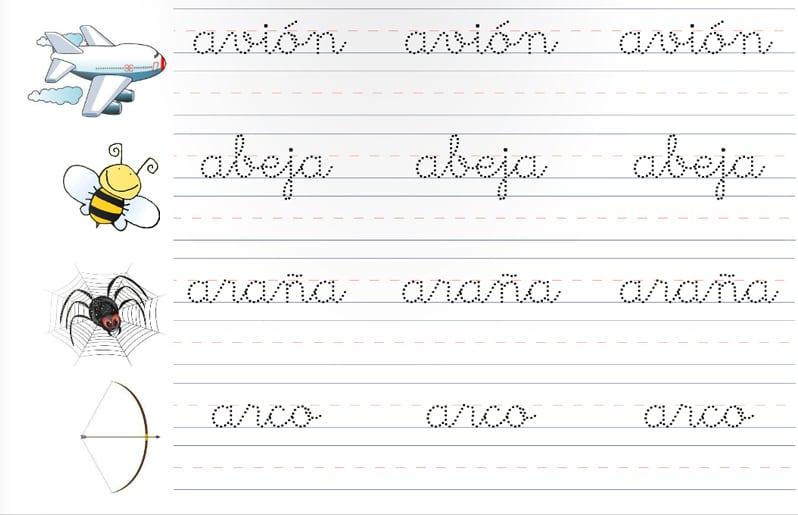 avión avión avión
abeja abeja abeja
araña araña araña
arco arco arco